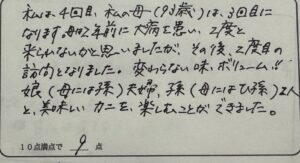 私は、4回目、私の母(93歳)は、3回目に
なります。母は2年前に大病を患い、2度と
来られないかと思いましたが、その後、2度目の
訪問となりました。変わらない味、ボリューム!!
娘(母には孫)夫婦、孫(母にはひ孫)2人
と、美味しいカニを、楽しむことができました。
10点満点で 9 点